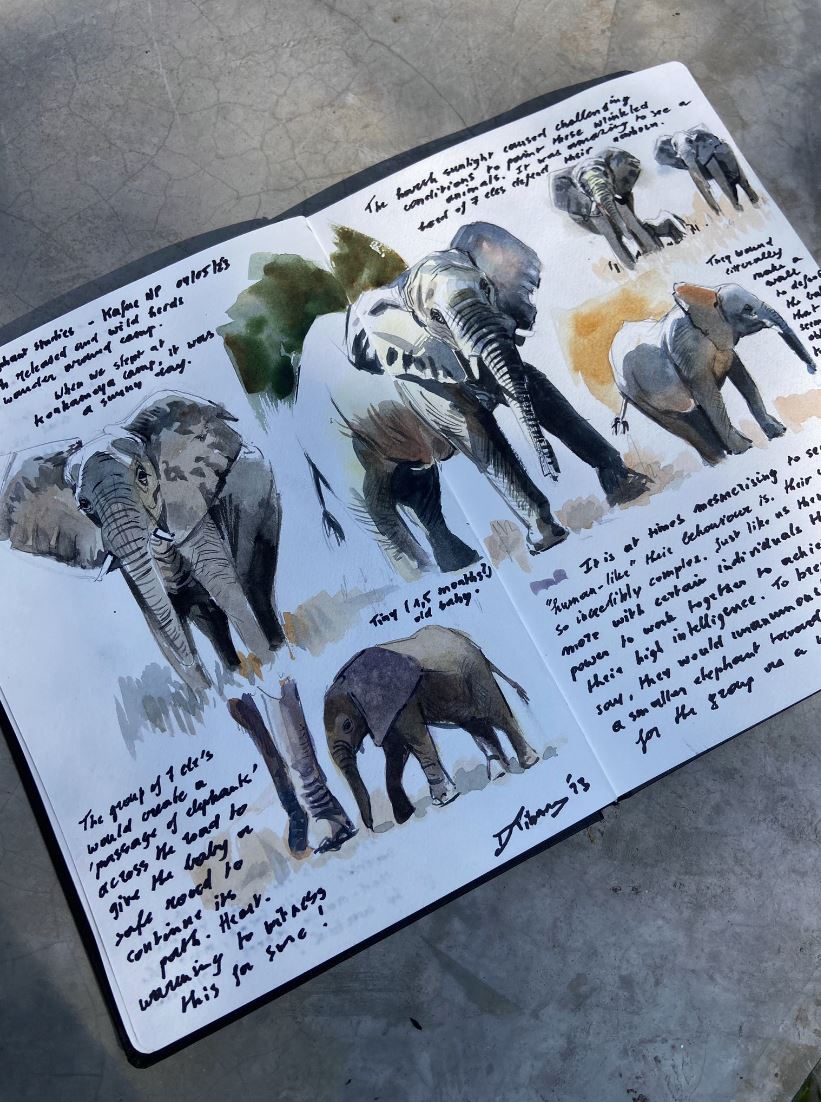 studies - Kafue NP 04/05/23
released and wild herds
wander around camp.
When we slept at
Konkamoya camp, it was
a sunny day.
The harsh sunlight caused challenging
conditions to paint these wrinkled
animals. It was amazing to see a
herd of 7 eles defend their newborn.
They would
literally
make a
wall
to defend
the
that
Tiny (1,5 months?)
old baby.
It is at times mesmerising to see
"human-like" their behaviour is. Their
so incredibly complex, just like us
more with certain individuals
power to work together to achieve
their high intelligence. To
saw, they would
a smaller elephant towards
for the group as a
The group of 7 ele's
would create a
'passage of elephants'
across the road to
give the baby a
safe road to
continue its
path. Heart.
warming to witness
this for sure!
'23